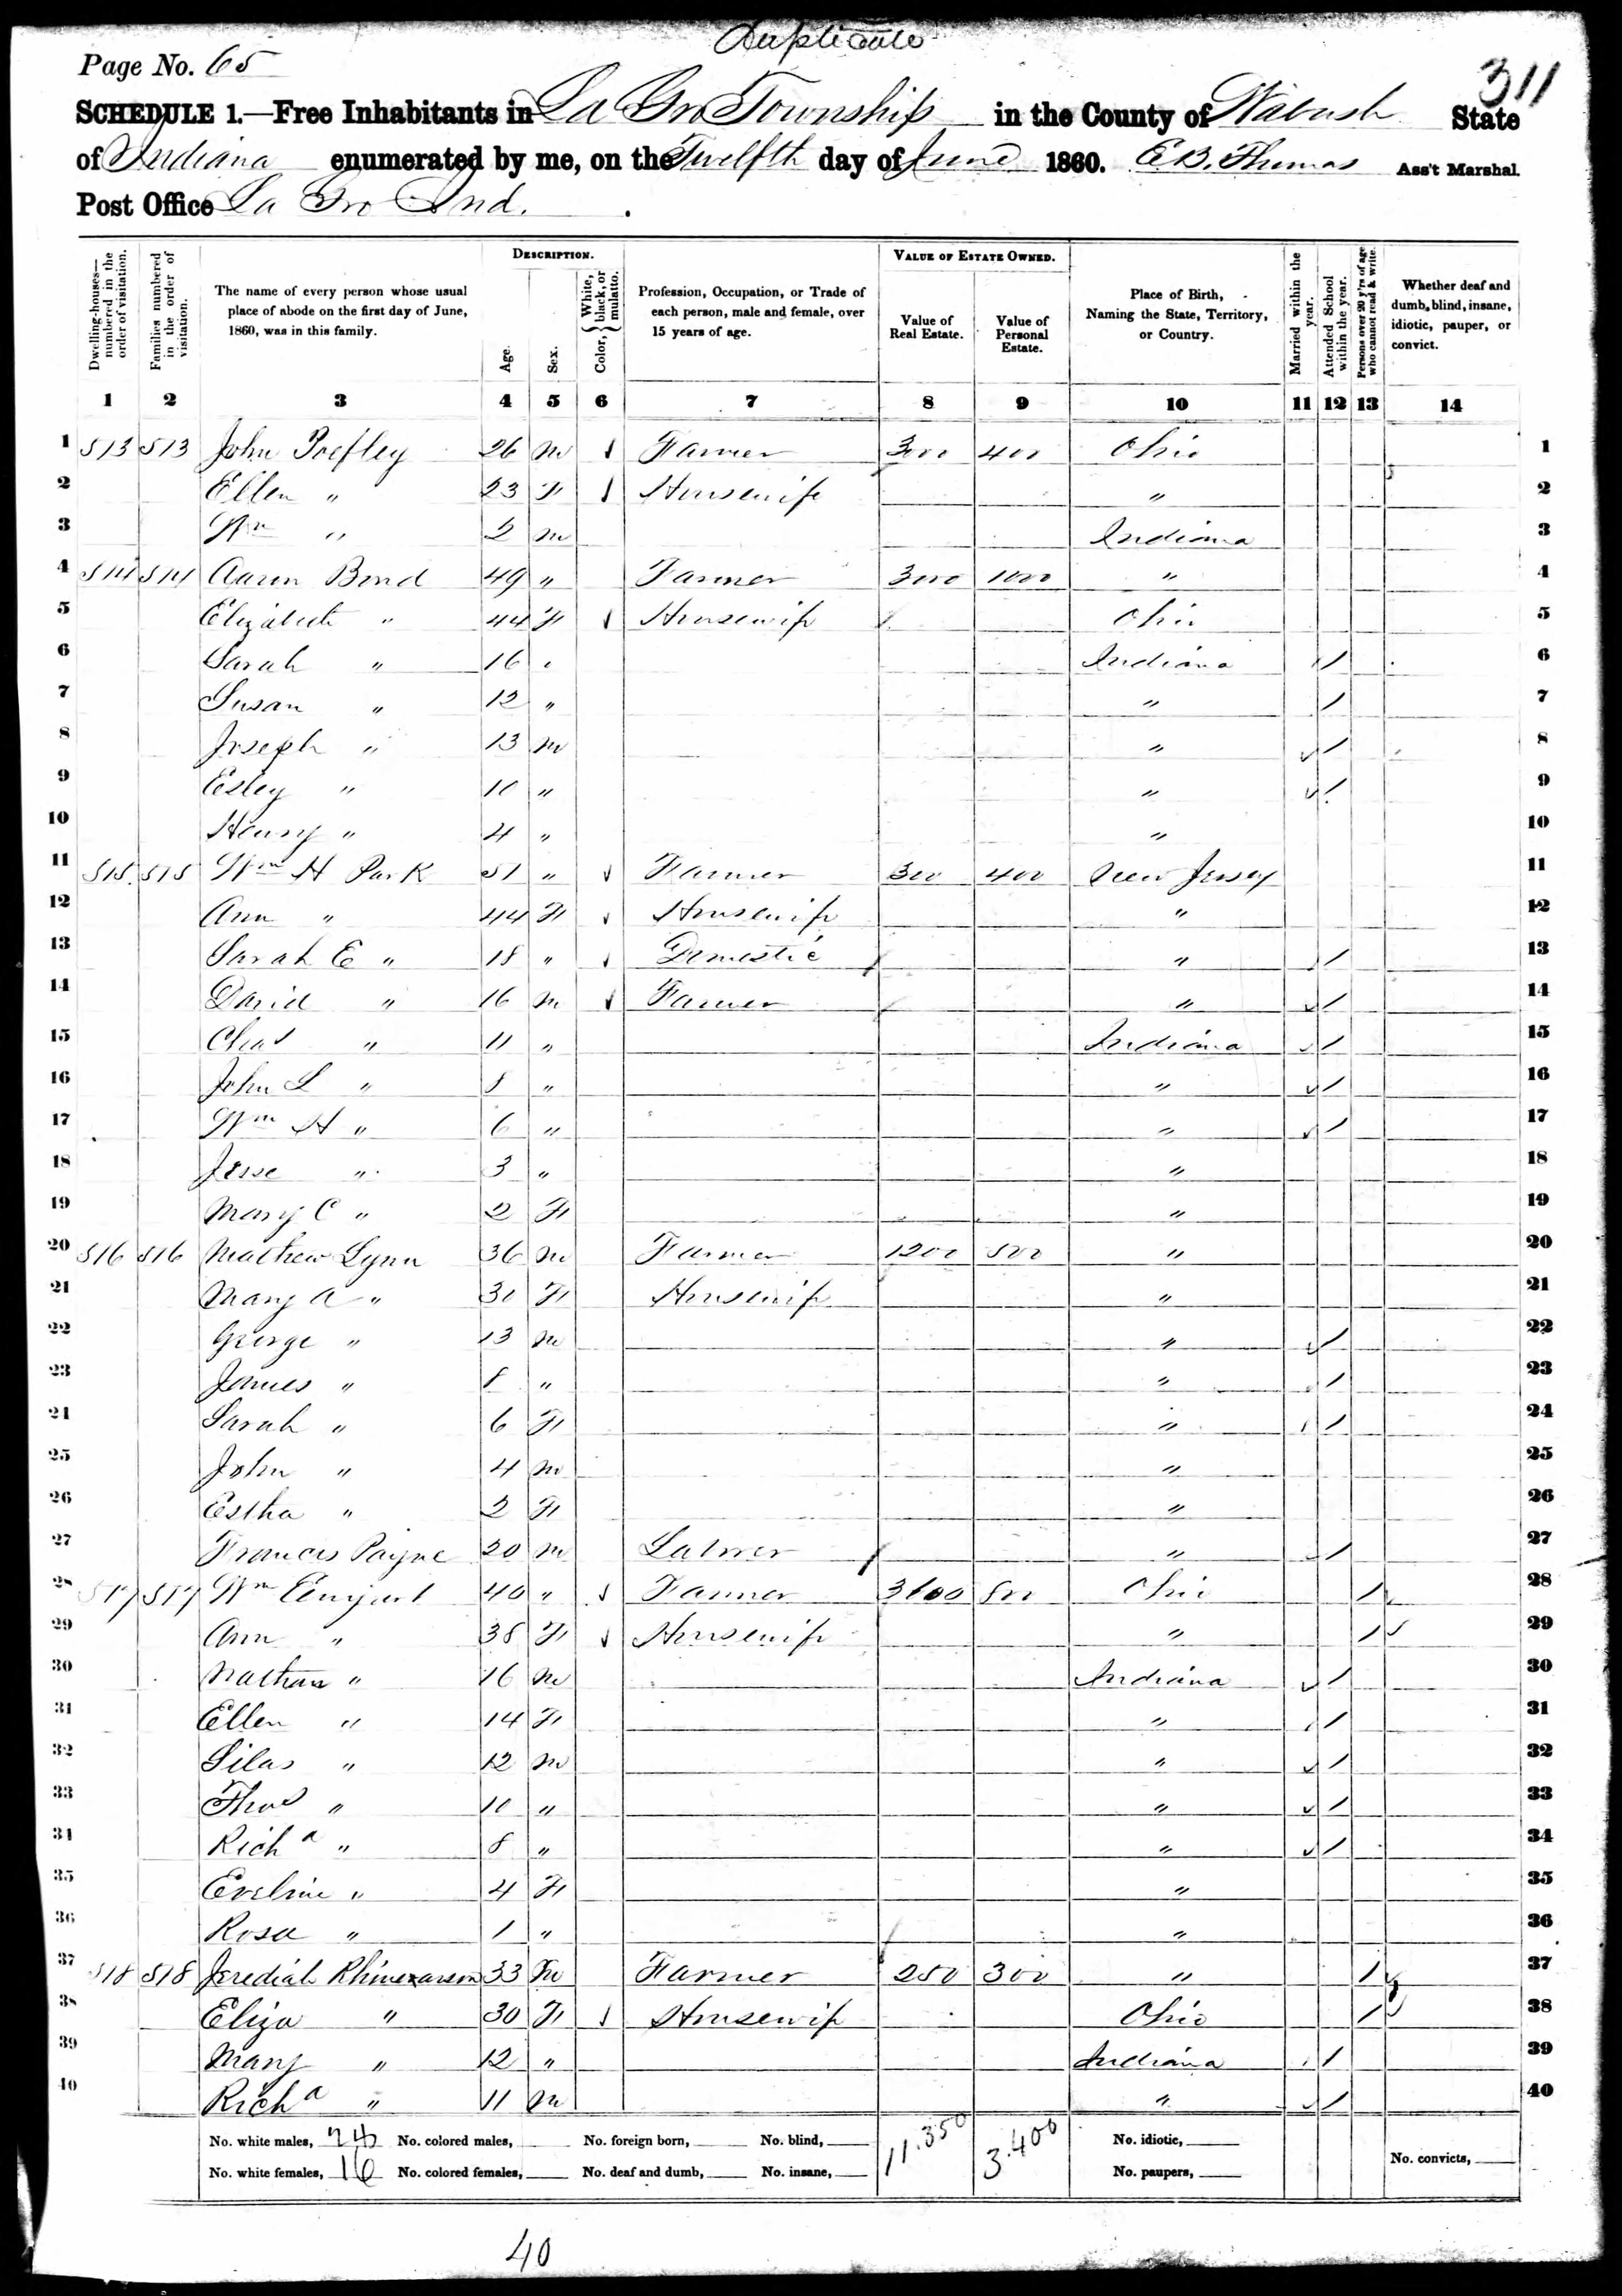 Duplicate
Page No. 65
311
SCHEDULE 1.—Free Inhabitants in La Gro Township in the County of Wabash State
of Indiana enumerated by me, on the Twelfth day of June 1860. E.B. Thomas Ass't Marshal.
Post Office La Gro Ind.
DESCRIPTION. VALUE OF ESTATE OWNED.
Dwelling-houses—numbered in the order of visitation. Families numbered in the order of visitation. The name of every person whose usual place of abode on the first day of June, 1860, was in this family. Age. Sex. Color, { White, black, or mulatto. Profession, Occupation, or Trade of each person, male and female, over 15 years of age. Value of Real Estate. Value of Personal Estate. Place of Birth, Naming the State, Territory, or Country. Married within the year. Attended School within the year. Persons over 20 y'rs of age who cannot read & write. Whether deaf and dumb, blind, insane, idiotic, pauper, or convict.
1 2 3 4 5 6 7 8 9 10 11 12 13 14
1 513 513 John 26 m Farmer 3000 400 Ohio 1
2 Ellen " 23 F Housewife " 2
3 Wm " 2 m Indiana 3
4 514 514 Aaron Bond 49 " Farmer 3000 1000 " 4
5 Elizabeth " 44 F Housewife Ohio 5
6 Sarah " 16 " Indiana / 6
7 Susan " 12 " " / 7
8 Joseph " 13 m " / 8
9 Esley " 10 " " / 9
10 Henry " 4 " " 10
11 515 515 Wm H Park 51 " Farmer 300 400 New Jersey 11
12 Ann " 44 F Housewife " 12
13 Sarah E " 18 " Domestic " / 13
14 David " 16 m Farmer " / 14
15 Chas " 11 " Indiana / 15
16 John L " 8 " " / 16
17 Wm H " 6 " " / 17
18 Jesse " 3 " " 18
19 Mary C " 2 F " 19
20 516 516 Mathew Lynn 36 m Farmer 1200 500 " 20
21 Mary A " 30 F Housewife " 21
22 George " 13 m " / 22
23 James " 8 " " / 23
24 Sarah " 6 F " / 24
25 John " 4 m " 25
26 Estha " 2 F " 26
27 Frances Payne 20 m Laborer " / 27
28 517 517 Wm Enyart 40 " Farmer 3600 800 Ohio / 28
29 Ann " 38 F Housewife " / 29
30 Nathan " 16 m Indiana / 30
31 Ellen " 14 F " / 31
32 Silas " 12 m " / 32
33 Thos " 10 " " / 33
34 Richd " 8 " " / 34
35 Eveline " 4 F " 35
36 Rosa " 1 " " 36
37 518 518 Jerediah 33 m Farmer 250 300 " / 37
38 Eliza " 30 F Housewife Ohio / 38
39 Mary " 12 " Indiana / 39
40 Richd " 11 m " / 40
No. white males, 24 No. colored males, No. foreign born, No. blind, 11.350 3.400 No. idiotic,
No. white females, 16 No. colored females, No. deaf and dumb, No. insane, No. paupers, No. convicts,
40